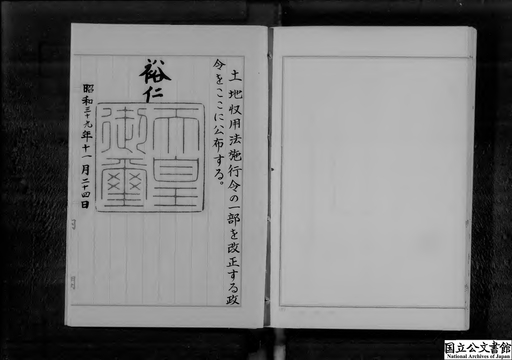 土地収用法施行令の一部を改正する政
令をここに公布する。
裕仁
天皇
御璽
昭和三十九年十一月二十四日
国立公文書館
National Archives of Japan